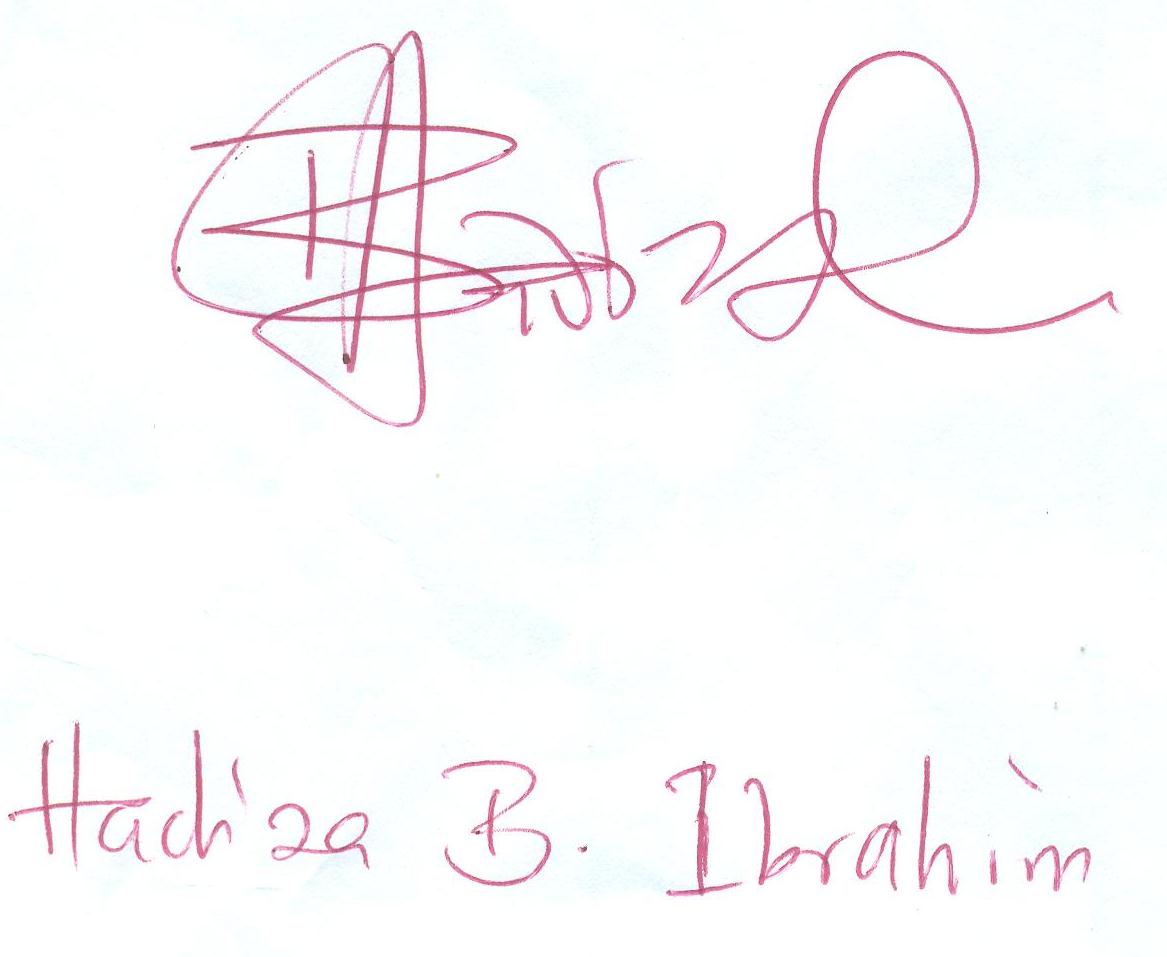 Hadiza B. Ibrahim